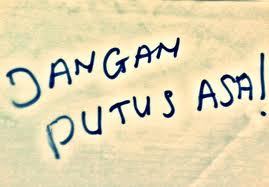 JANGAN
PUTUS ASA!